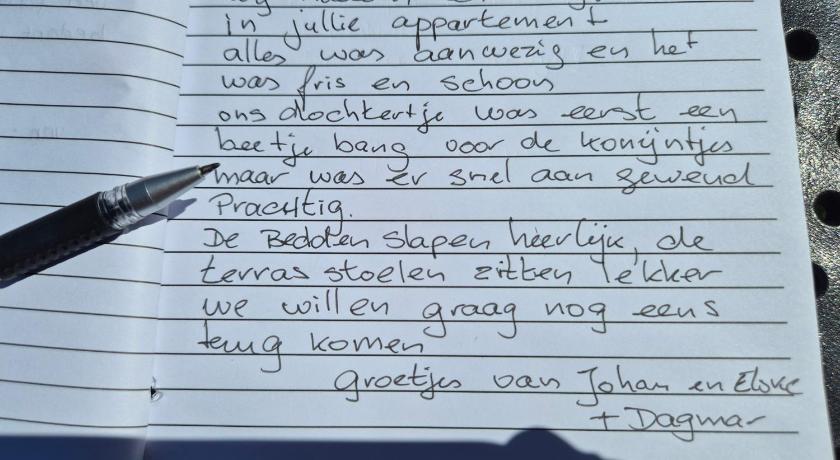 in jullie appartement
alles was aanwezig en het
was fris en schoon
ons dochtertje was eerst een
beetje bang voor de konijntjes
maar was er snel aan gewend
Prachtig.
De Bedden slapen heerlijk, de
terras stoelen zitten lekker
we willen graag nog eens
terug komen
groetjes van Johan en
+ Dagmar